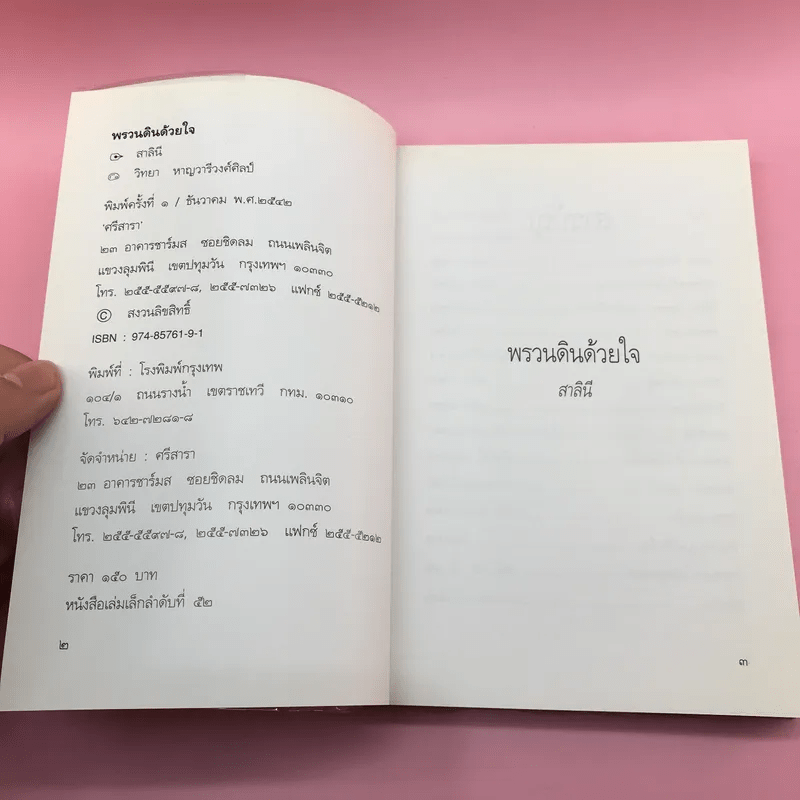 พรวนดินด้วยใจ
สาลินี
วิทยา หาญวารีวงศ์ศิลป์
พิมพ์ครั้งที่ ๑ / ธันวาคม พ.ศ.๒๕๔๒
'ศรีสารา'
๒๓ อาคารชาร์มส ซอยชิดลม ถนนเพลินจิต
แขวงลุมพินี เขตปทุมวัน กรุงเทพฯ ๑๐๓๓๐
โทร. ๒๕๕-๕๕๙๗-๘, ๒๕๕-๗๓๒๖ แฟกซ์ ๒๕๕-๕๒๑๒
© สงวนลิขสิทธิ์
ISBN : 974-85761-9-1
พิมพ์ที่ : โรงพิมพ์กรุงเทพ
๑๐๔/๑ ถนนรางน้ำ เขตราชเทวี กทม. ๑๐๓๑๐
โทร. ๖๔๒-๗๒๘๑-๘
จัดจำหน่าย : ศรีสารา
๒๓ อาคารชาร์มส ซอยชิดลม ถนนเพลินจิต
แขวงลุมพินี เขตปทุมวัน กรุงเทพฯ ๑๐๓๓๐
โทร. ๒๕๕-๕๕๙๗-๘, ๒๕๕-๗๓๒๖ แฟกซ์ ๒๕๕-๕๒๑๒
ราคา ๑๕๐ บาท
หนังสือเล่มเล็กลำดับที่ ๕๒
๒
พรวนดินด้วยใจ
สาลินี
๓